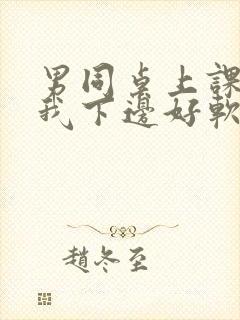 男同桌上課
我下邊好軟
趙冬至